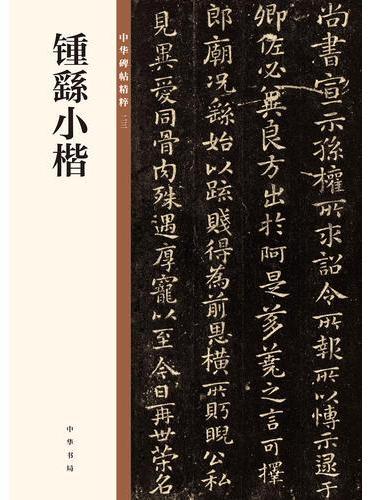 锺繇小楷
中华碑帖精粹 二三
中华书局
尚書宣示孫權所求詔令所報所以博示逮于
卿佐必冀良方出於阿是芻蕘之言可擇
郎廟況繇始以疏賤得為前恩橫所眄睨公私
見異愛同骨肉殊遇厚寵以至今日再世榮名